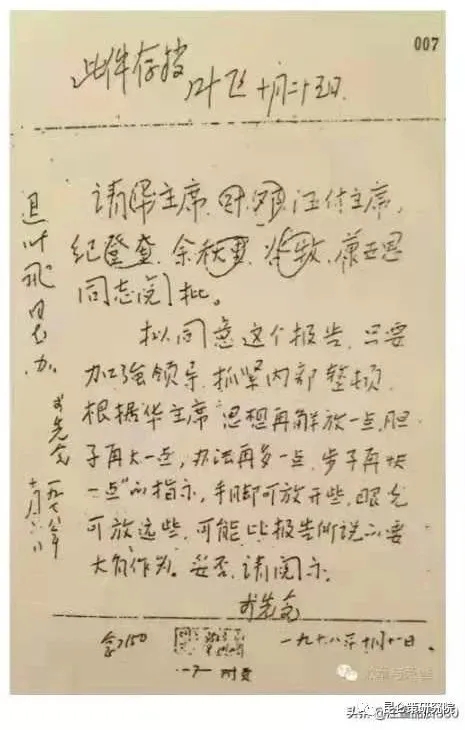 007
此件存档
叶飞 十月二十五日
请华主席、叶、邓、汪付主席,
纪登奎、余秋里、谷牧、康世恩
同志阅批。
拟同意这个报告,只要
加强领导,抓紧内部整顿,
根据华主席“思想再解放一点,胆
子再大一点,办法再多一点,步子再快
一点”的指示,手脚可放开些,眼光
可放远些,可能比报告所说的要
大有作为。妥否,请阅示。
李先念
一九七八年十月
退叶飞同志办
李先念
一九七八年
附页
头条
昆仑策研究院